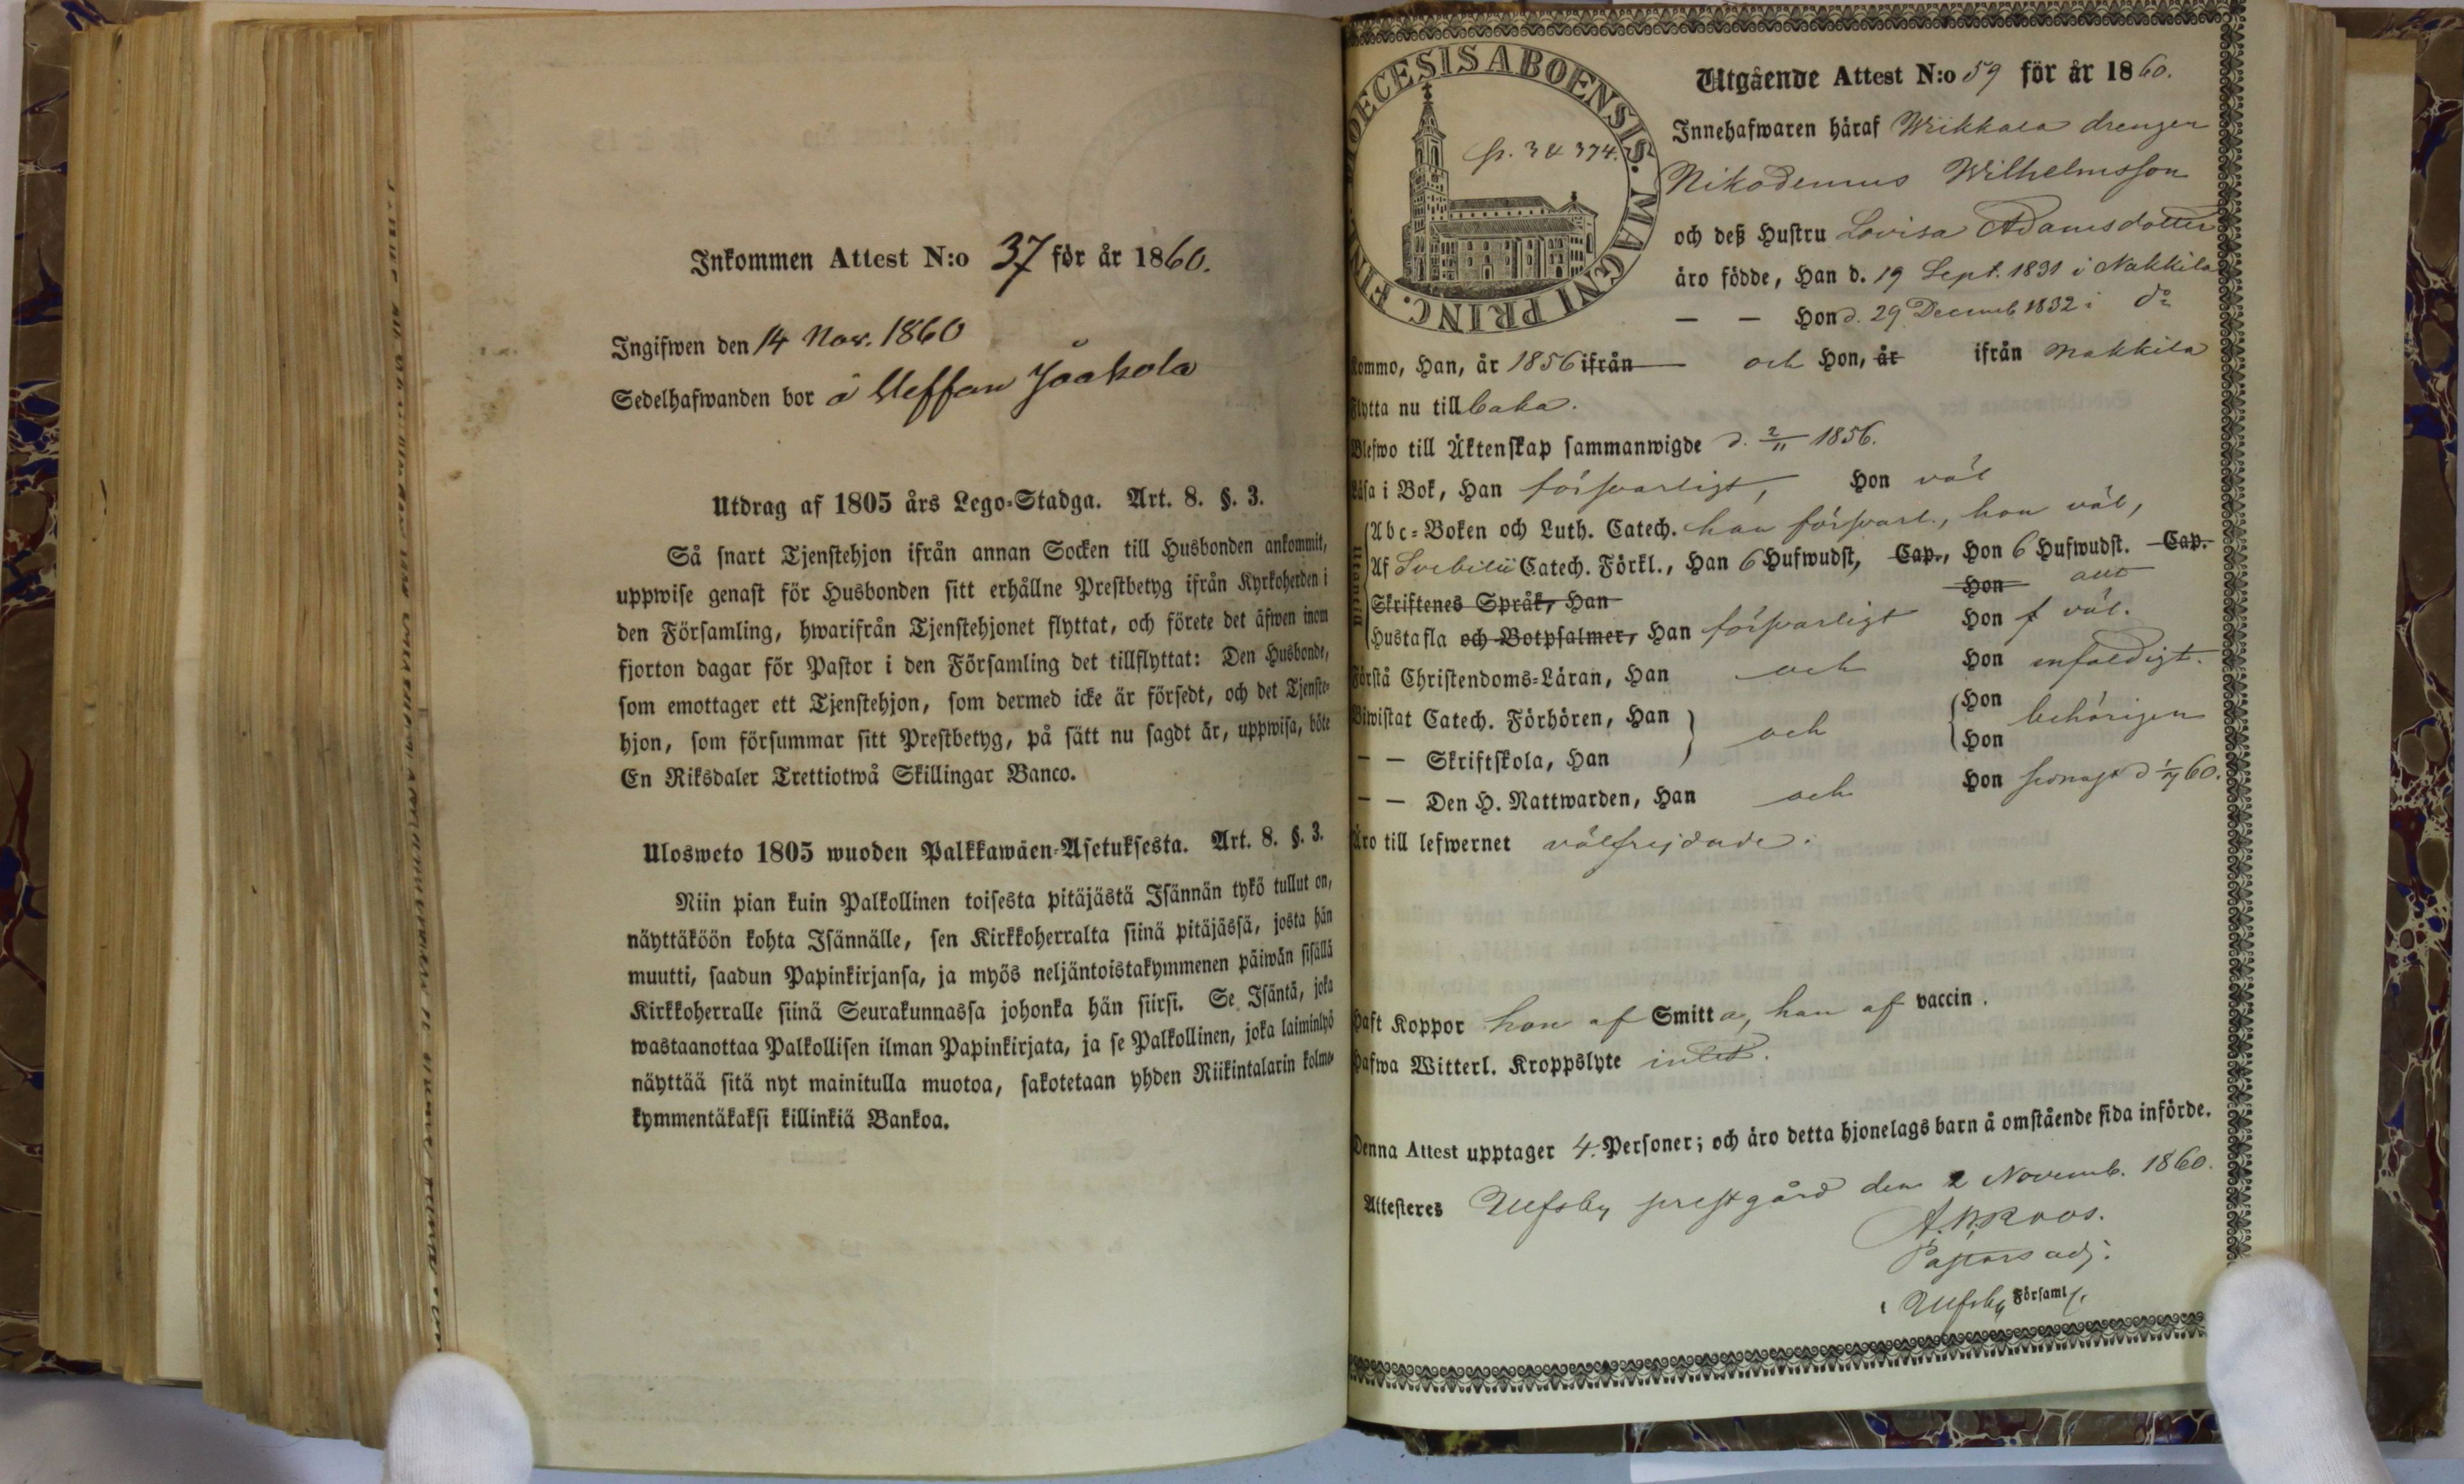 Inkommen Attest N:o 37 för år 1860.
Ingifwen den 14 Nov. 1860
Sedelhafwanden bor å Ueffan Jaakola
Utdrag af 1805 års Lego-Stadga. Art. 8. §. 3.
Så snart Tjenstehjon ifrån annan Socken till Husbonden ankommit,
uppwise genast för Husbonden sitt erhållne Prestbetyg ifrån Kyrkoherden i
den Församling, hwarifrån Tjenstehjonet flyttat, och förete det äfwen inom
fjorton dagar för Pastor i den Församling det tillflyttat: Den Husbonde,
som emottager ett Tjenstehjon, som dermed icke är försedt, och det Tjenste-
hjon, som försummar sitt Prestbetyg, på sätt nu sagdt är, uppwisa, böte
En Riksdaler Trettiotwå Skillingar Banco.
Ulosweto 1805 wuoden Palkkawäen-Asetuksesta. Art. 8. §. 3.
Niin pian kuin Palkollinen toisesta pitäjästä Isännän tykö tullut on,
näyttäköön kohta Isännälle, sen Kirkkoherralta siinä pitäjässä, josta hän
muutti, saadun Papinkirjansa, ja myös neljäntoistakymmenen päiwän sisällä
Kirkkoherralle siinä Seurakunnassa johonka hän siirsi. Se Isäntä, joka
wastaanottaa Palkollisen ilman Papinkirjata, ja se Palkollinen, joka laiminlyö
näyttää sitä nyt mainitulla muotoa, sakotetaan yhden Riikintalarin kolme-
kymmentäkaksi killinkiä Bankoa.
DIOECESIS ABOENSIS. MAGNI PRINC. FINL.
p. 3 & 374.
Utgående Attest N:o 59 för år 1860.
Innehafwaren häraf Wiikkala drengen
Nikodemus Wilhelmsson
och deß Hustru Lovisa Adamsdotter
äro födde, Han d. 19 Sept. 1831 i Nakkila
— — Hon d. 29 Decemb 1832 i do
Kommo, Han, år 1856 ifrån — och Hon, år ifrån Nakkila
Flytta nu tillbaka.
Blefwo till Äktenskap sammanwigde d. 2/11 1856.
Läsa i Bok, Han försvarligt, Hon väl
Utantill
Abc-Boken och Luth. Catech. han försvarl., hon väl,
Af Svebilii Catech. Förkl., Han 6 Hufwudst, Cap., Hon 6 Hufwudst. Cap.
Skriftenes Språk, Han Hon allt
Hustafla och Botpsalmer, Han försvarligt Hon f väl.
Förstå Christendoms-Läran, Han och Hon enfaldigt.
Biwistat Catech. Förhören, Han och Hon behörigen
— — Skriftskola, Han Hon
— — Den H. Nattwarden, Han och Hon senast d 1/7 60.
Äro till lefwernet välfrejdade.
Haft Koppor hon af Smitta, han af vaccin.
Hafwa Witterl. Kroppslyte intet.
Denna Attest upptager 4. Personer; och äro detta hjonelags barn å omstående sida införde.
Attesteres Ulfsby prestgård den 2 Novemb. 1860.
A. W. Roos.
Pastors adj.
i Ulfsby Förssaml.